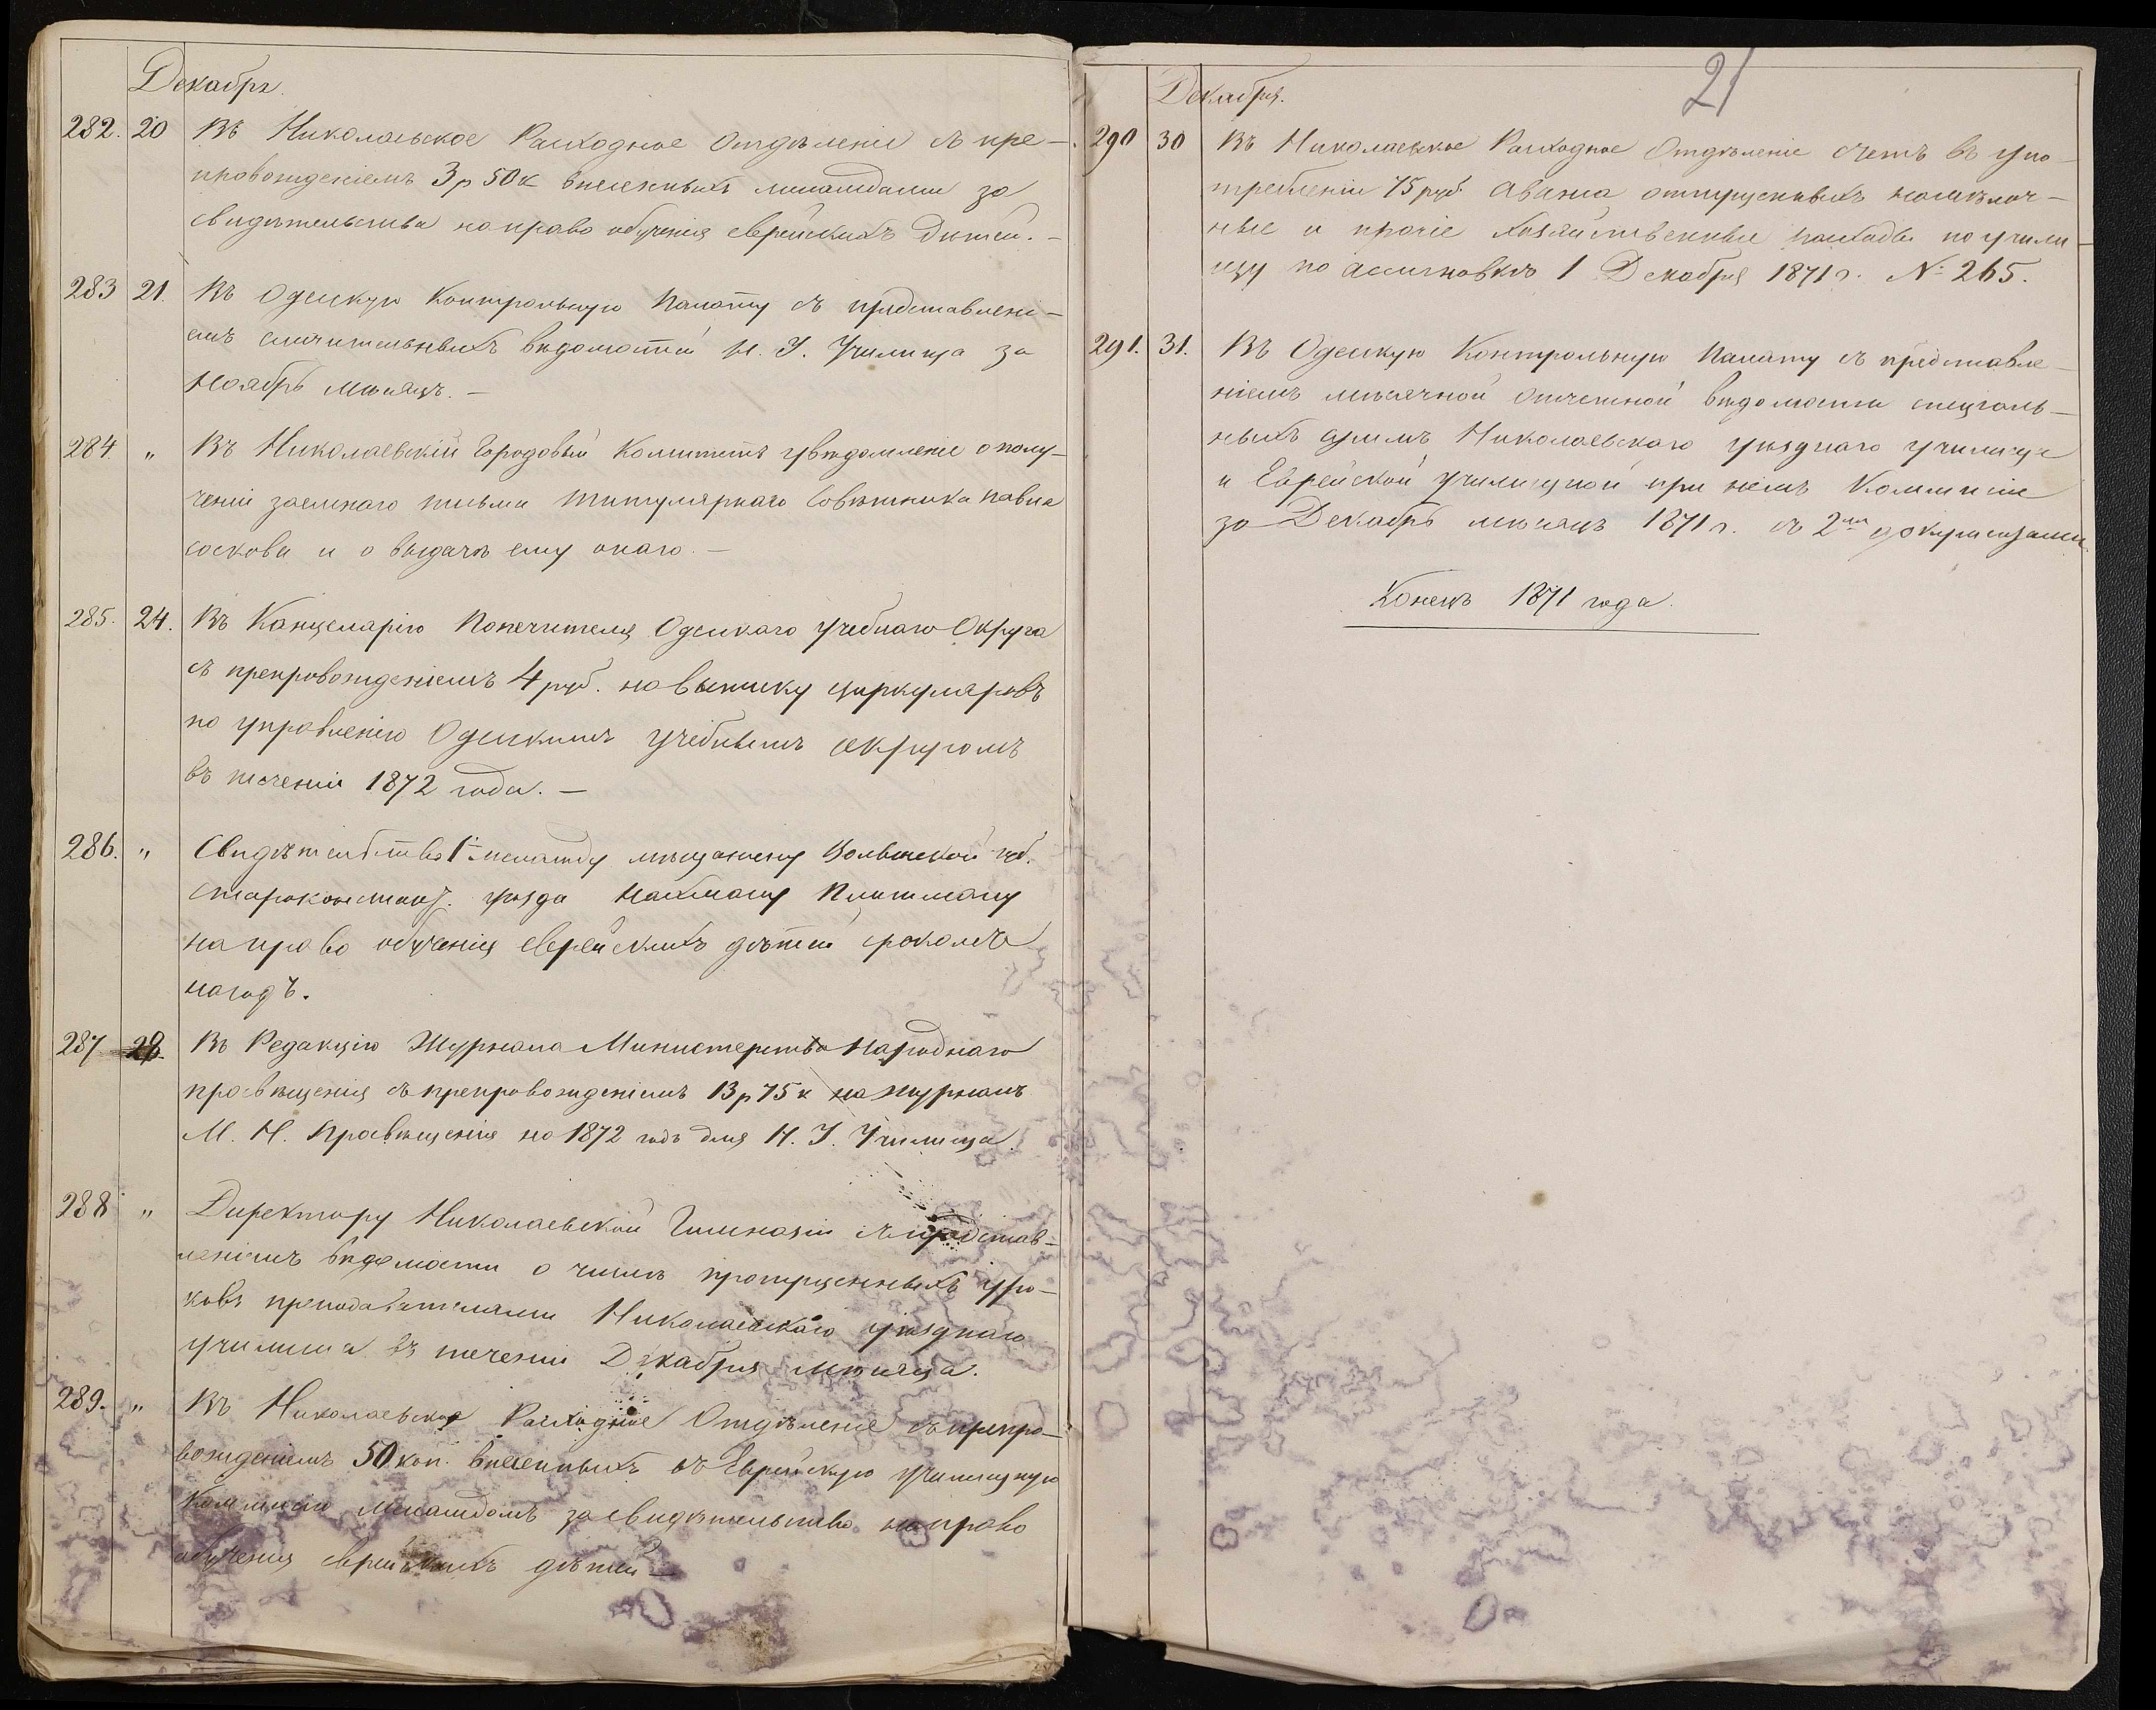 Декабрь.
282. 20 Въ Николаевское Расходное Отдѣленіе съ пре-
провожденіемъ 3 р 50 к внесенныхъ меламдами за
свидѣтельства на право обученія еврейскихъ дѣтей. -
283 21. Въ Одесскую Контрольную Палату съ представлені-
емъ сличительныхъ вѣдомостей Н. У. Училища за
Ноябрь мѣсяцъ. -
284. „ Въ Николаевскій Городовый Комитетъ увѣдомленіе о полу-
ченіи заемнаго письма Титулярнаго Совѣтника
и о выдачѣ ему онаго. -
285. 24. Въ Канцелярію Попечителя Одесскаго Учебнаго Округа
съ препровожденіемъ 4 руб. на выписку циркуляровъ
по управленію Одесскимъ учебнымъ округомъ
въ теченіи 1872 года. -
286. „ Свидѣтельство меламду мѣщанину Волынской губ.
Староконстант. уѣзда Нахману Плитману
на право обученія еврейскихъ дѣтей срокомъ
на годъ.
287 28. Въ Редакцію Журнала Министерства Народнаго
просвѣщенія съ препровожденіемъ 13 р 75 к на журналъ
М. Н. Просвѣщенія на 1872 годъ для Н. У. Училища.
288 „ Директору Николаевской Гимназіи съ представ-
леніемъ вѣдомости о числѣ пропущенныхъ уро-
ковъ преподавателями Николаевскаго уѣзднаго
училища въ теченіи Декабря мѣсяца.
289. „ Въ Николаевское Расходное Отдѣленіе съ препро-
вожденіемъ 50 коп. внесенныхъ въ Еврейскую училищную
Коммисію меламдомъ за свидѣтельство на право
обученія еврейскихъ дѣтей -
21
Декабря.
290 30 Въ Николаевское Расходное Отдѣленіе счетъ въ упо-
требленіи 75 руб. аванса отпущенныхъ на мѣлоч-
ные и прочіе хозяйственные расходы по учили-
щу по ассигновкѣ 1 Декабря 1871 г. № 265.
291. 31. Въ Одесскую Контрольную Палату съ представле-
ніемъ мѣсячной отчетной вѣдомости спеціаль-
ныхъ суммъ Николаевскаго уѣзднаго училища
и Еврейской училищной при немъ Коммисіи
за Декабрь мѣсяцъ 1871 г. съ 2мя документами.
Конецъ 1871 года.